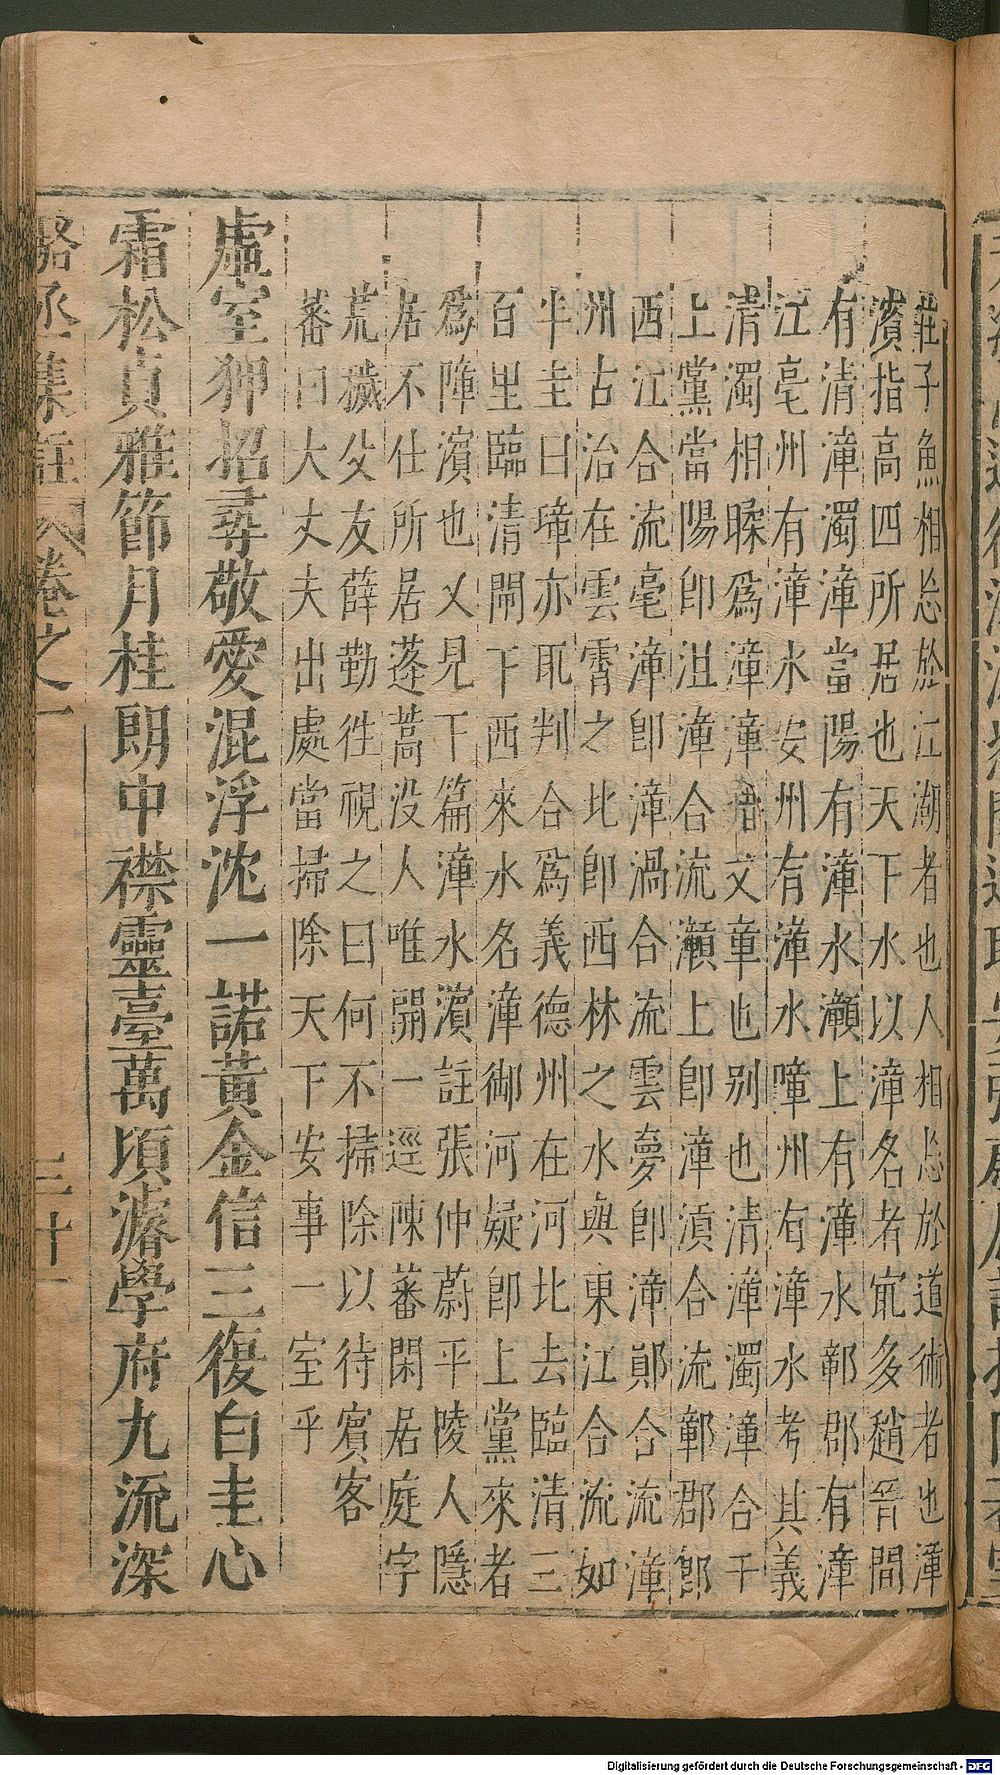 莊子魚相忘於江湖者也人相忘於道術者也漳
濱指高四所居也天下水以漳名者宼多趙晉間
有清漳濁漳當陽有漳水灨上有漳水鄣郡有漳
江亳州有漳水安州有漳水嶂州有漳水考其義
清濁相蹂爲漳漳文章也别也清漳濁漳合于
上黨當陽卽沮漳合流灨上卽漳滇合流鄣郡郎
西江合流毫漳卽漳渦合流雲夢卽漳鄖合流漳
州古治在雲霄之北卽西林之水與東江合流如
半圭曰璋亦取判合爲義德州在河北去臨清三
百里臨清閘下西來水名漳御河疑卽上黨來者
爲障濱也乂見下篇漳水濵註張仲蔚平陵人隱
居不仕所居蓬蒿没人唯開一逕陳蕃閑居庭宇
荒穢父友薛勤徃視之曰何不掃除以待賓客
蕃曰大丈夫出處當掃除天下安事一室乎
虛室狎招尋敬愛混浮沈一諾黃金信三復白圭心
霜松貞雅節月桂朗中襟靈臺萬頃濬學府九流深
駱丞集註 卷之一 三十一
Digitalisierung gefördert durch die Deutsche Forschungsgemeinschaft - DFG